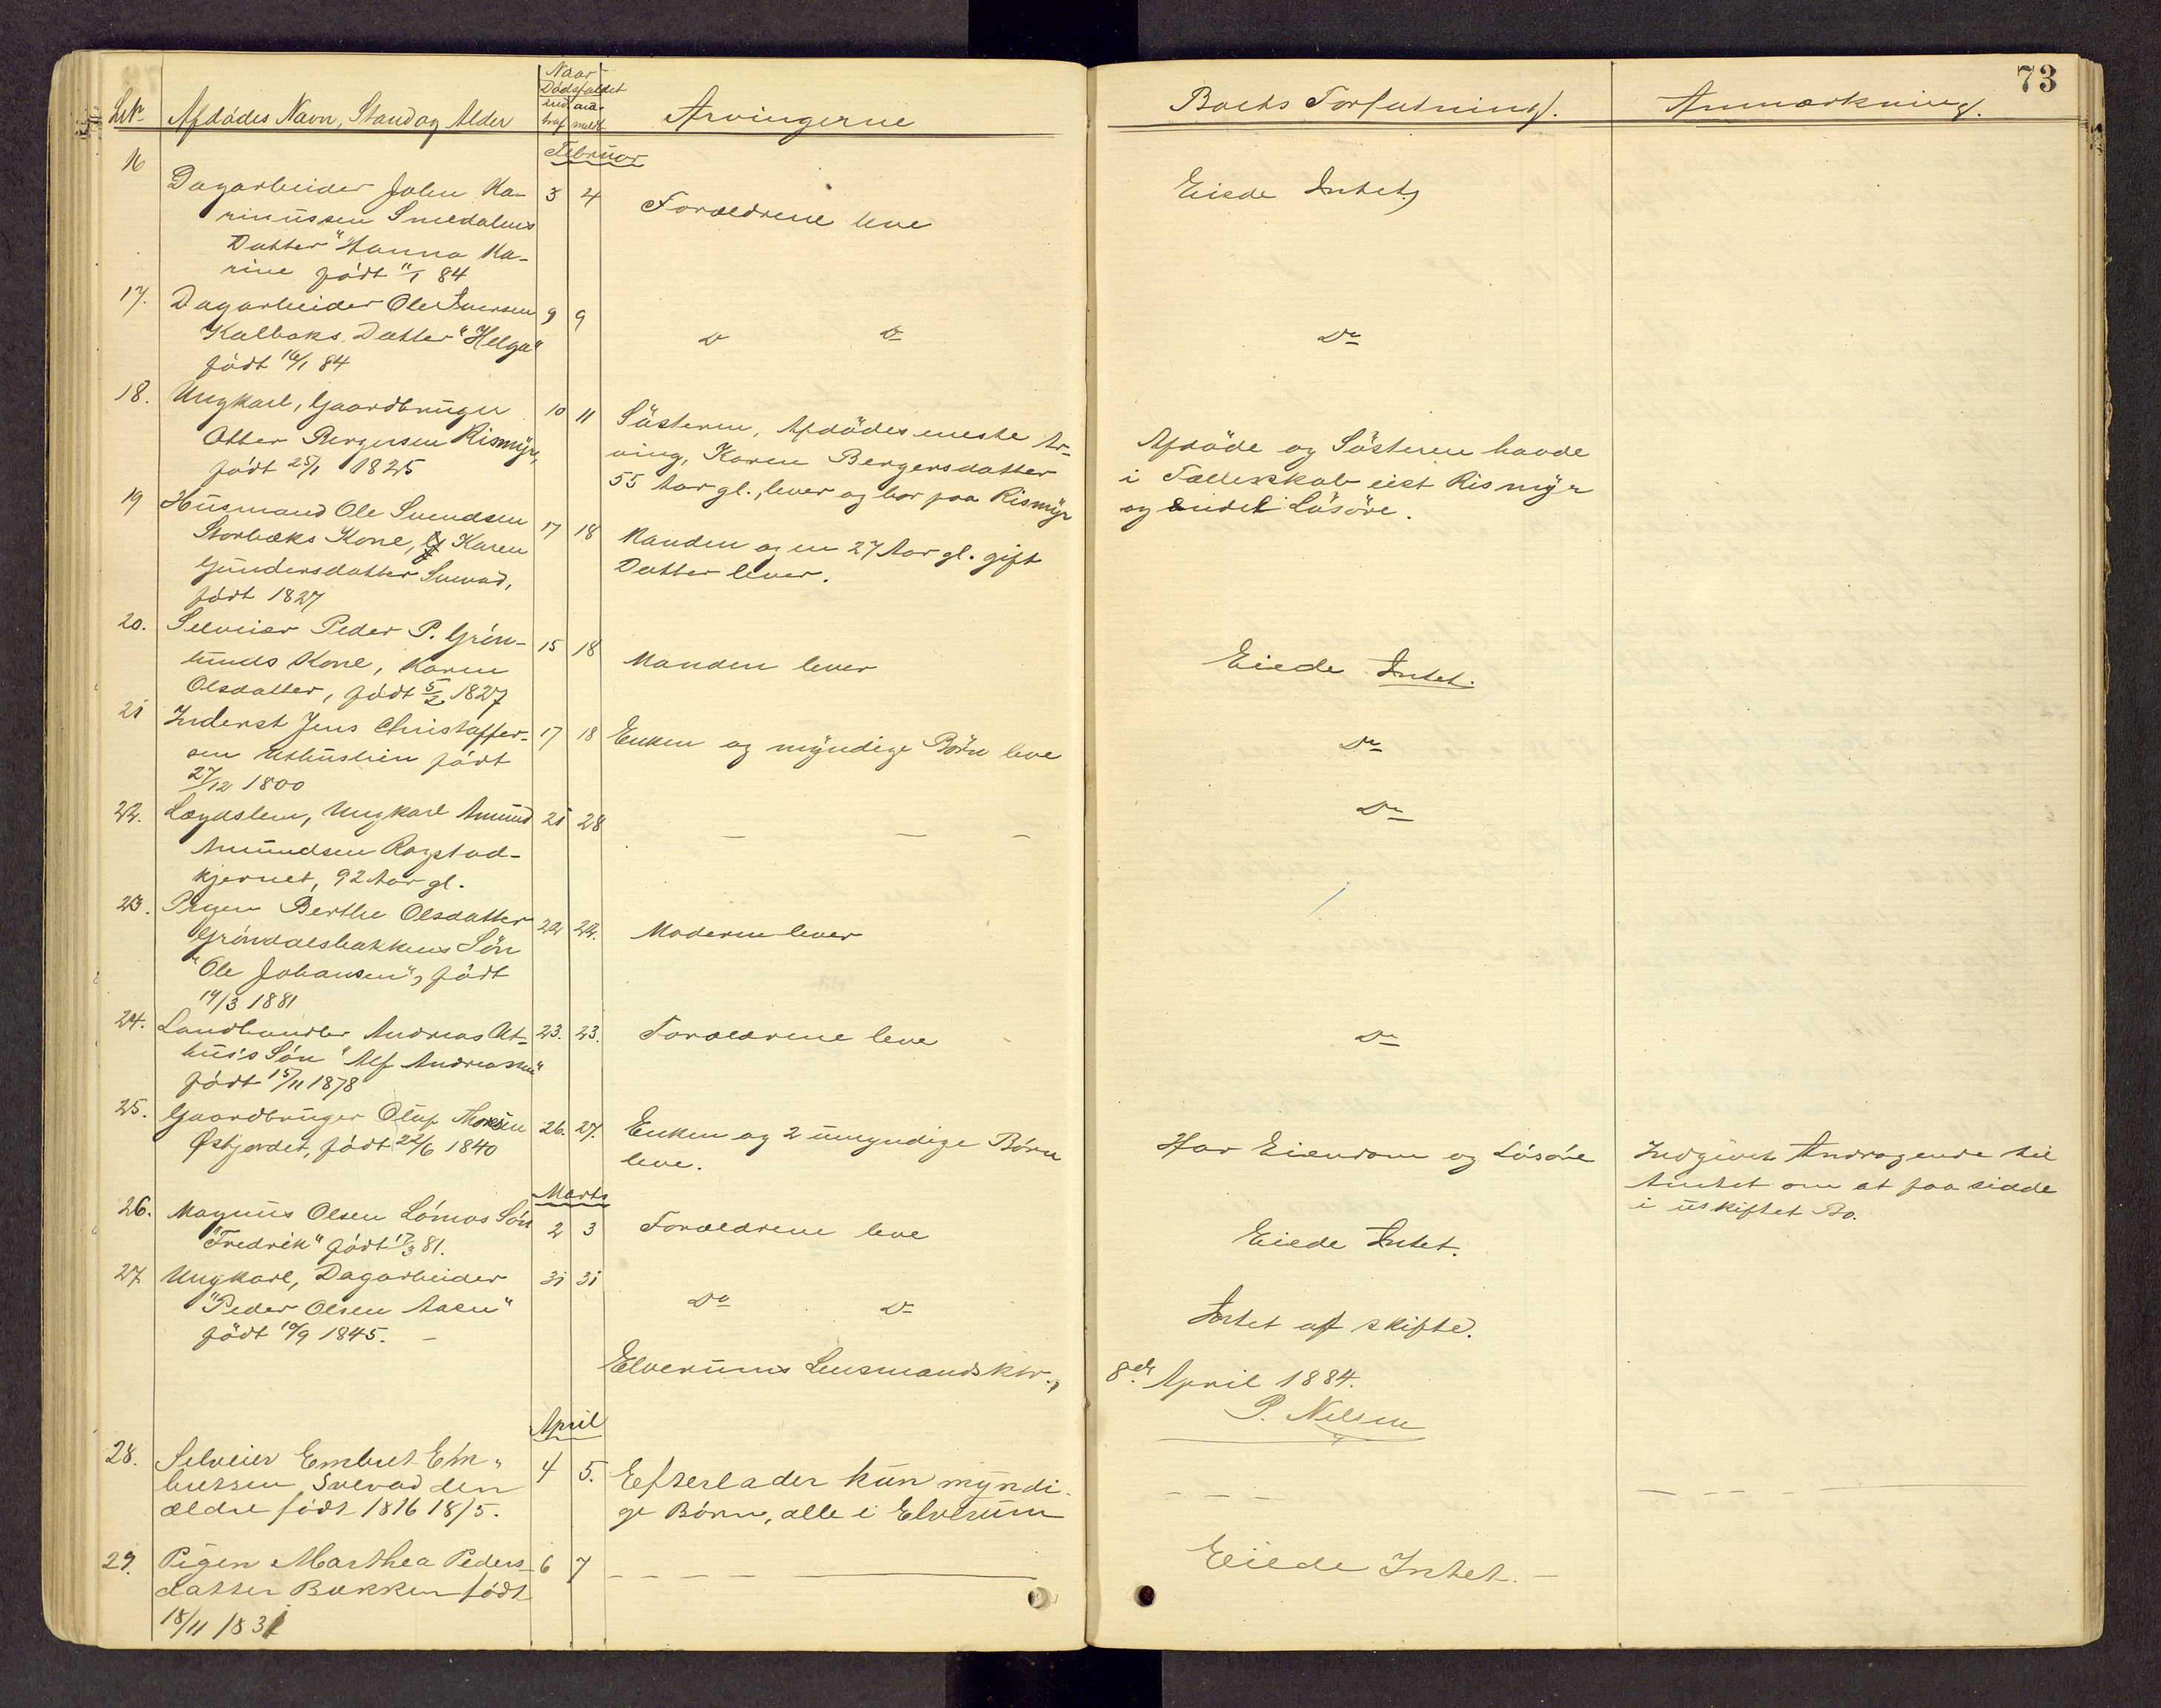 73
Naar
Dødsfaldet
L.Nr. Afdødes Navn, Stand og Alder indtraf anmeldt Arvingerne Boets Forfatning. Anmærkning.
Februar
16 Dagarbeider Johan Ka- 3 4 Forældrene leve Eiede Intet.
rinussen Smedalens
Datter "Hanna Ka-
rine født 11/1 84
17. Dagarbeider Ole Iversen 9 9 Do Do Do
Kalbaks Datter "Helga"
født 16/1 84
18. Ungkarl, Gaardbruger 10 11 Søsteren, Afdødes eneste Ar-
Otter Bergersen Rismyr, ving, Karen Bergersdatter
født 25/1 1825 55 Aar gl., lever og bor paa Rismyr
Afdøde og Søsteren havde
i Fællesskab eiet Rismyr
og endel Løsøre.
19 Husmand Ole Svendsen 17 18 Manden og en 27 Aar gl. gift
Storbæks Kone, Karen Datter lever.
Gundersdatter
født 1827
20. Selveier Peder P. Grøn- 15 18 Manden lever Eiede Intet.
lunds Kone, Karen
Olsdatter, født 5/2 1827
21 Inderst Jens Christoffer- 17 18 Enken og myndige Børn leve Do
sen født
27/12 1800
22. Lægdslem, Ungkarl Amund 21 28 — — — Do
Amundsen
kjernet, 92 Aar gl.
23. Pigen Berthe Olsdatter 22 22. Moderen lever /
Grøndalsbakkens Søn
"Ole Johansen", født
14/3 1881
24. Landhandler Andreas Ut- 23. 23. Forældrene leve Do
hus's Søn "Alf Andreassen"
født 15/11 1878
25. Gaardbruger Oluf 26. 27. Enken og 2 umyndige Børn Har Eiendom og Løsøre Indgivet Andragende til
født 22/6 1840 leve. Amtet om at faa sidde
i uskiftet Bo.
Marts
26. Magnus Olsen Lømos Søn 2 3 Forældrene leve Eiede Intet.
"Fredrik" født 17/3 81.
27. Ungkarl, Dagarbeider 31 31 Do Do Intet at skifte.
"Peder Olsen Aasen"
født 10/9 1845. —
Elverums Lensmandsktr., 8de April 1884.
P. Nilsen
April
28. Selveier Embret Em- 4 5. Eefterlader kun myndi- — — — — — —
bretsen, den ge Børn, alle i Elverum
ældre født 1816 18/5.
29. Pigen Marthea Peders- 6 7 — — — — Eiede Intet. —
datter Bakken født
18/11 1831